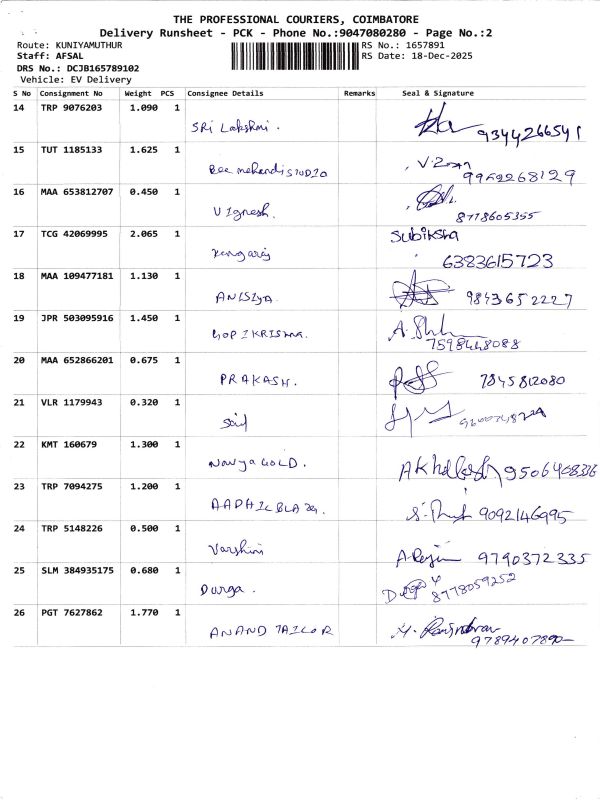 THE PROFESSIONAL COURIERS, COIMBATORE
Delivery Runsheet - PCK - Phone No.:9047080280 - Page No.:2
Route: KUNIYAMUTHUR RS No.: 1657891
Staff: AFSAL RS Date: 18-Dec-2025
DRS No.: DCJB165789102
Vehicle: EV Delivery
S No Consignment No Weight PCS Consignee Details Remarks Seal & Signature
14 TRP 9076203 1.090 1
SRi Lakshmi. 9344266541
15 TUT 1185133 1.625 1
Bee mehandi STUDIO
16 MAA 653812707 0.450 1
Vignesh. 8778605355
17 TCG 42069995 2.065 1 Subiksha
6383615723
18 MAA 109477181 1.130 1
ANISIYA. 9843652227
19 JPR 503095916 1.450 1
GOPIKRISHNA.
7598448088
20 MAA 652866201 0.675 1
PRAKASH. 7845812080
21 VLR 1179943 0.320 1
22 KMT 160679 1.300 1
NavyaGOLD. 9506408336
23 TRP 7094275 1.200 1
9092146995
24 TRP 5148226 0.500 1
Varshini 9790372335
25 SLM 384935175 0.680 1
Durga. 8778059252
26 PGT 7627862 1.770 1
ANAND TAILOR